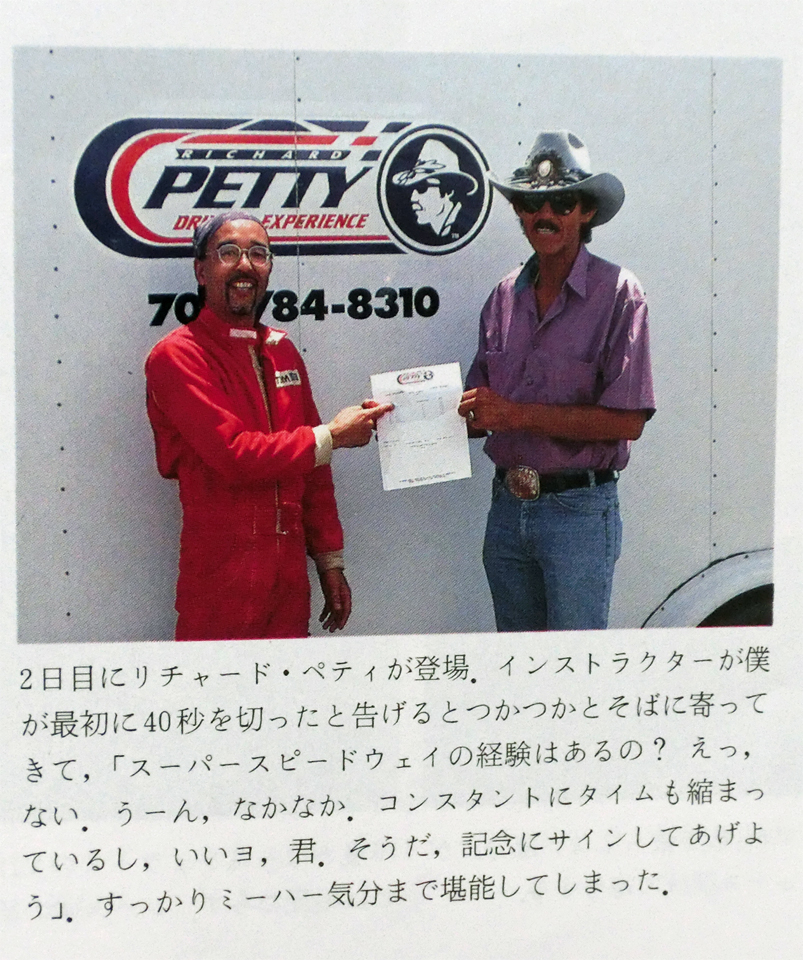 RICHARD
PETTY
EXPERIENCE
84-8310
PETTY
2日目にリチャード・ペティが登場．インストラクターが僕
が最初に40秒を切ったと告げるとつかつかとそばに寄って
きて，「スーパースピードウェイの経験はあるの？ えっ，
ない．うーん，なかなか．コンスタントにタイムも縮まっ
ているし，いいヨ，君．そうだ，記念にサインしてあげよ
う」．すっかりミーハー気分まで堪能してしまった．